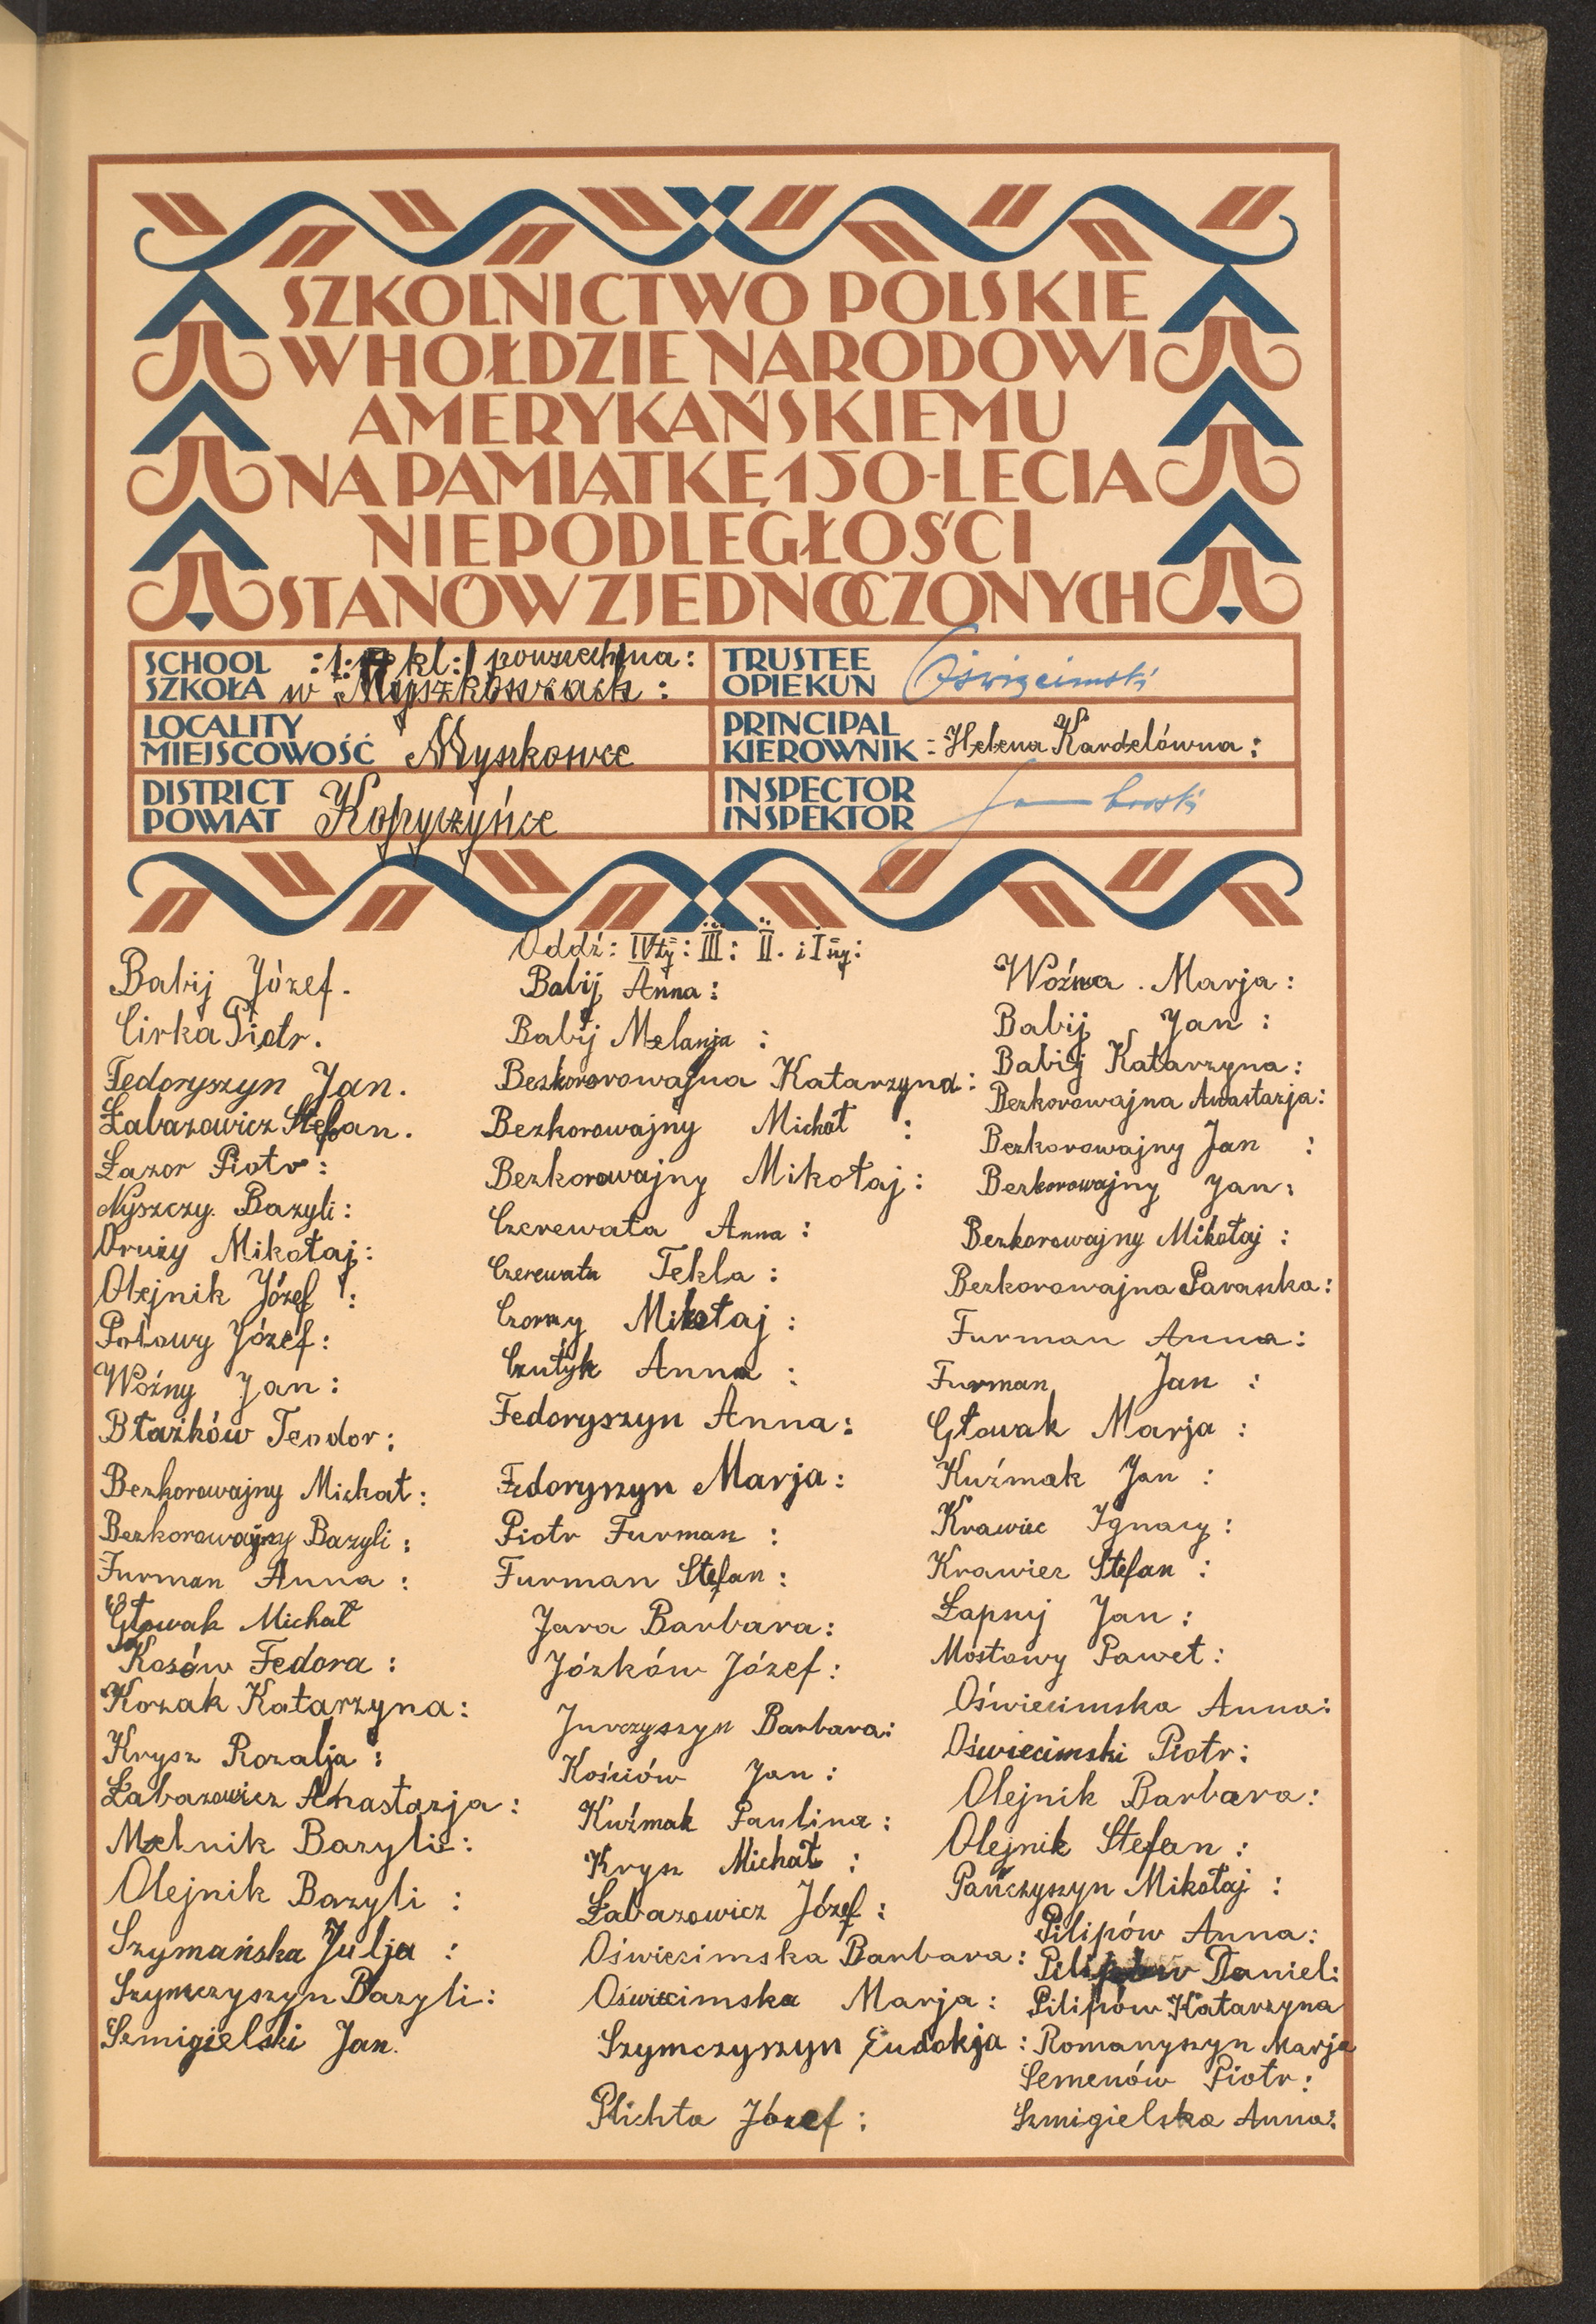 SZKOLNICTWO POLSKIE
W HOŁDZIE NARODOWI
AMERYKAŃSKIEMU
NA PAMIĄTKĘ 150-LECIA
NIEPODLEGŁOŚCI
STANÓW ZJEDNOCZONYCH
SCHOOL
SZKOŁA
kl: powszechna:
w Myszkowcach:
TRUSTEE
OPIEKUN
Oświęcimski
LOCALITY
MIEJSCOWOŚĆ
Myszkowce
PRINCIPAL
KIEROWNIK
Helena Kardelówna:
DISTRICT
POWIAT
Kopyczyńce
INSPECTOR
INSPEKTOR
Oddź: IVty: III: II. i I szy:
Babij Józef.
Cirka Piotr.
Fedoryszyn Jan.
Łabazowicz Stefan.
Łazor Piotr:
Nyszczy. Bazyli:
Oruży Mikołaj:
Olejnik Józef:
Połowy Józef:
Woźny Jan:
Błażków Teodor:
Bezkorowajny Michał:
Bezkorowajny Bazyli:
Furman Anna:
Głowak Michał
Kosów Fedora:
Kozak Katarzyna:
Krysz Rozalja:
Łabazowicz Anastazja:
Melnik Bazyli:
Olejnik Bazyli:
Szymańska Julja:
Szymczyszyn Bazyli:
Szmigielski Jan.
Babij Anna:
Babij Melanja:
Bezkorowajna Katarzyna:
Bezkorowajny Michał:
Bezkorowajny Mikołaj:
Czerewata Anna:
Czerewata Tekla:
Czorny Mikołaj:
Czutyk Anna:
Fedoryszyn Anna:
Fedoryszyn Marja:
Piotr Furman:
Furman Stefan:
Jara Barbara:
Józków Józef:
Jurczyszyn Barbara:
Kościów Jan:
Kuźmak Paulina:
Krysz Michał:
Łabazowicz Józef:
Oświecimska Barbara:
Oświecimska Marja:
Szymczyszyn Eudokja:
Plichta Józef:
Woźna. Marja:
Babij Jan:
Babij Katarzyna:
Bezkorowajna Anastazja:
Bezkorowajny Jan:
Bezkorowajny Jan:
Bezkorowajny Mikołaj:
Bezkorowajna Paraszka:
Furman Anna:
Furman Jan:
Głowak Marja:
Kuźmak Jan:
Krawiec Ignacy:
Krawiec Stefan:
Łapsij Jan:
Mostowy Paweł:
Oświecimska Anna:
Oświecimski Piotr:
Olejnik Barbara:
Olejnik Stefan:
Pańczyszyn Mikołaj:
Pilipów Anna:
Pilipów Daniel:
Pilipów Katarzyna
Romanyszyn Marja
Semenów Piotr:
Szmigielska Anna: